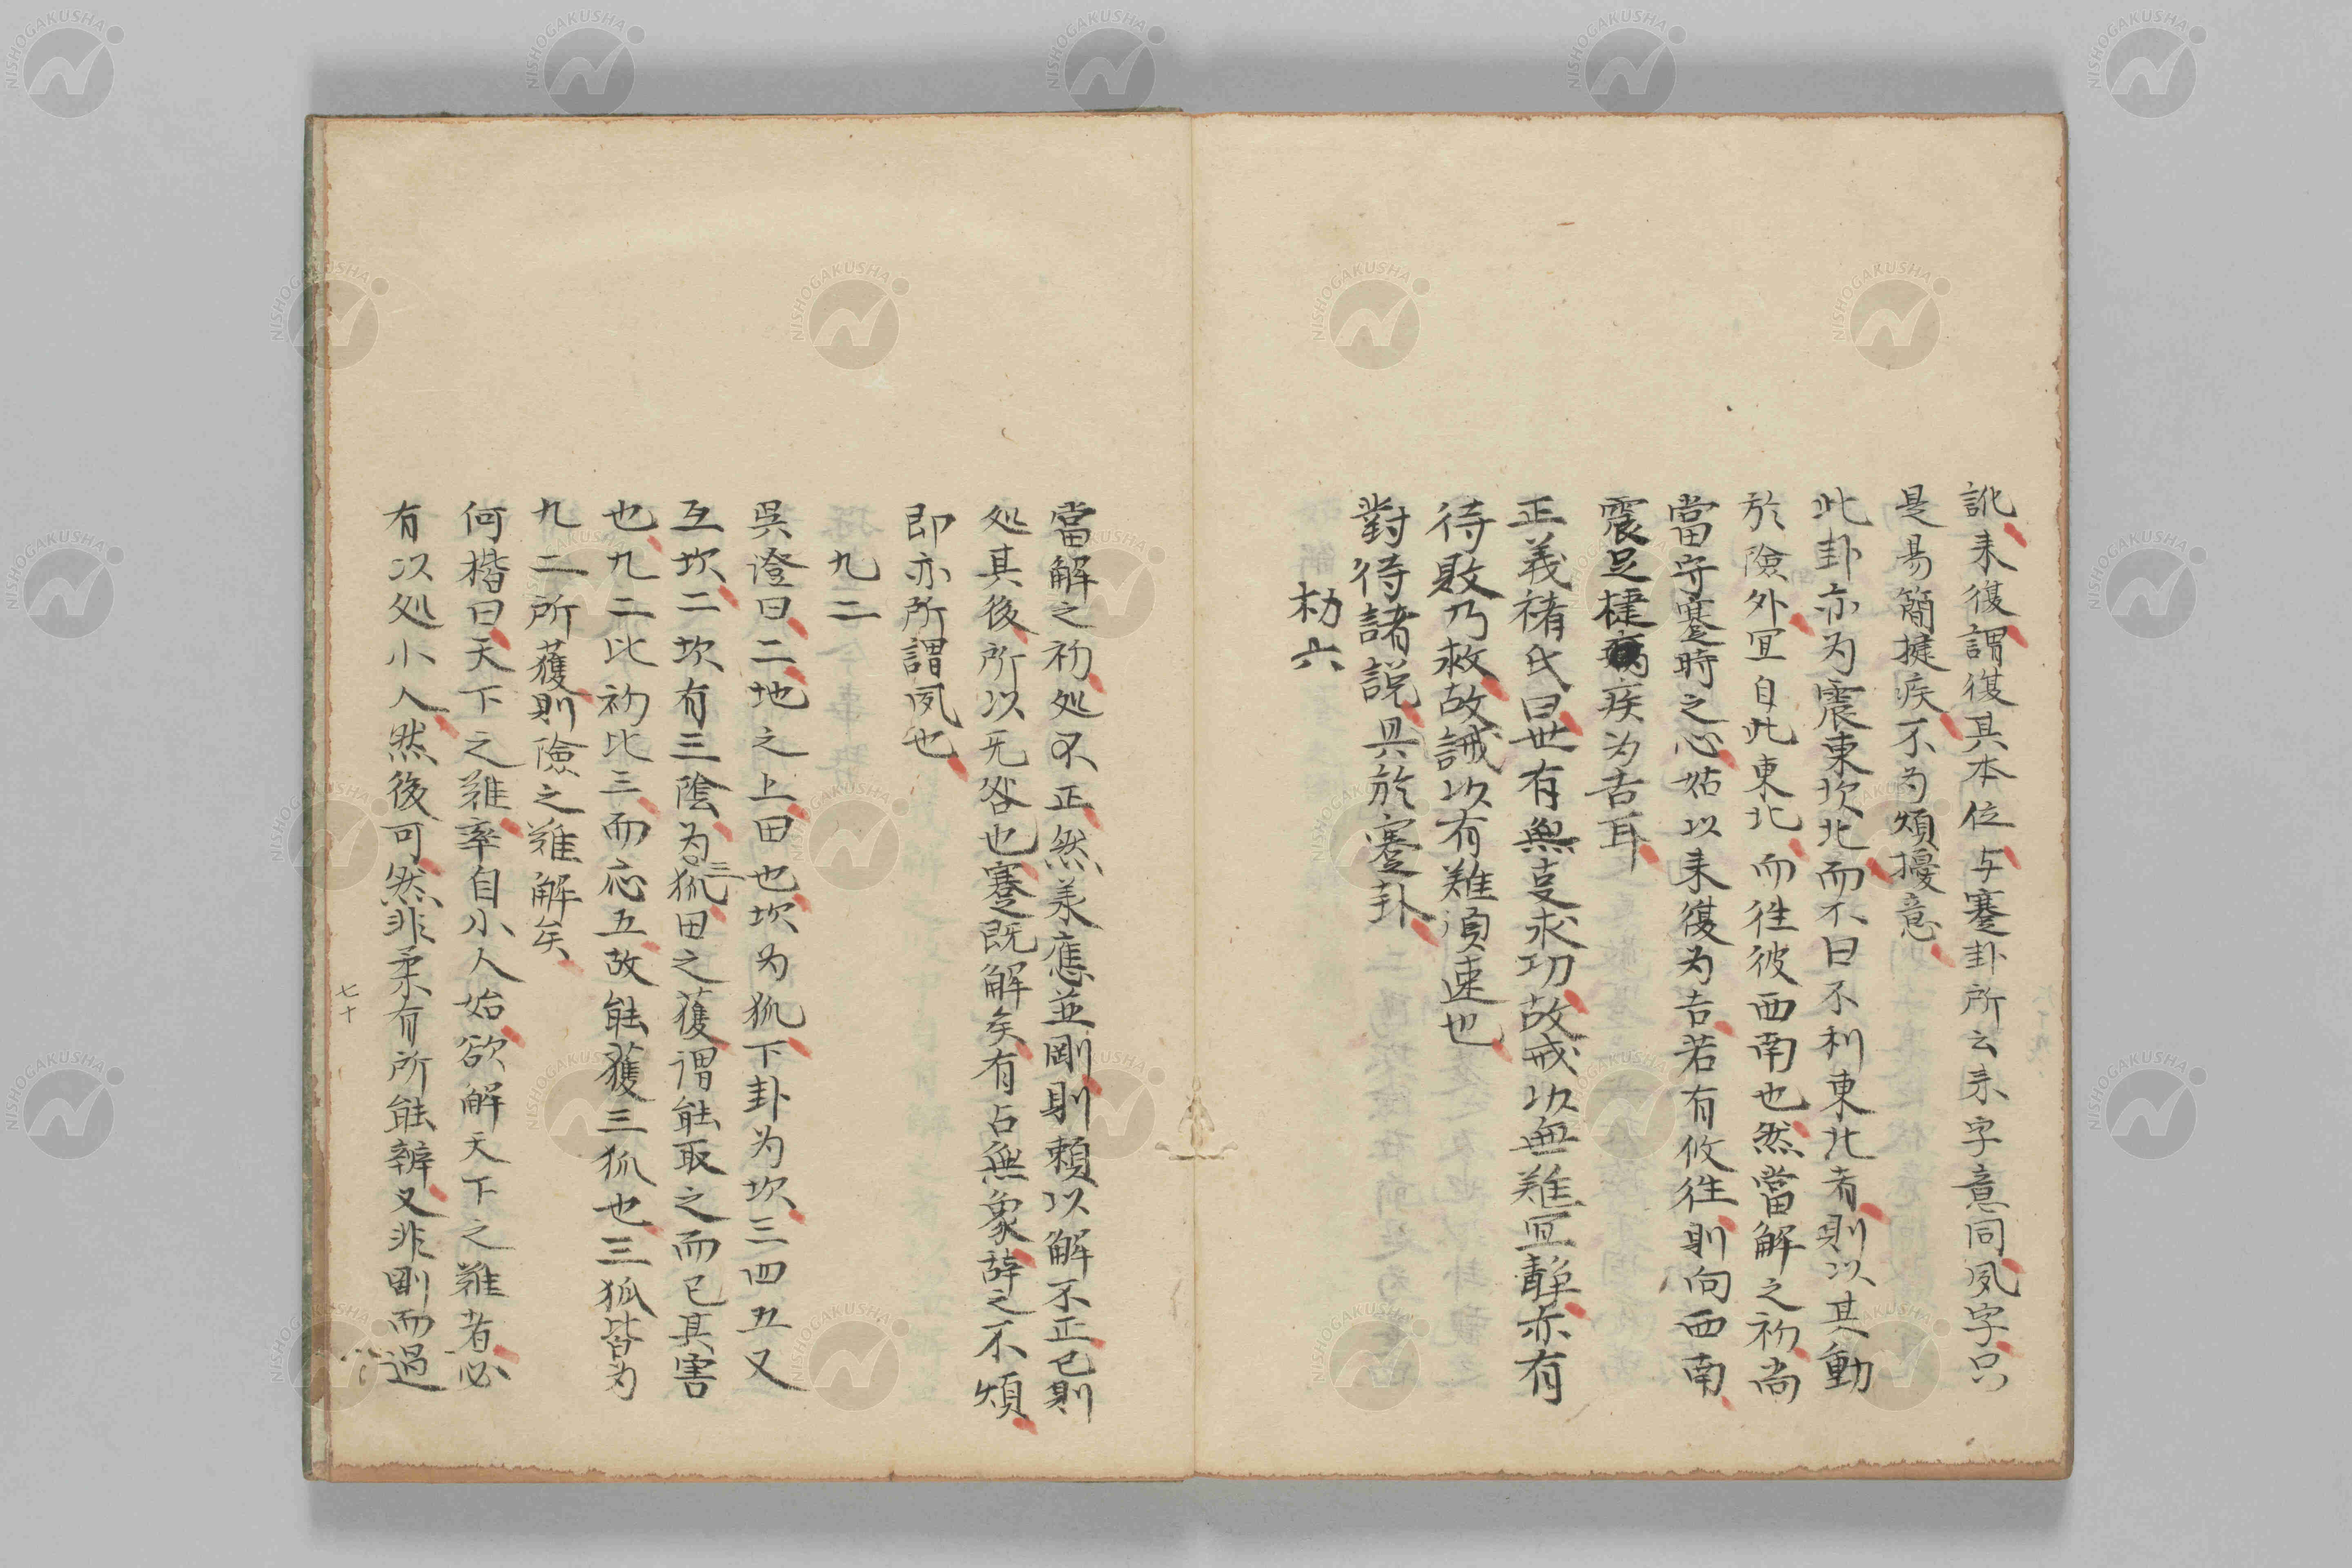 訛来復謂復其本位与蹇卦所云来字意同夙字只
是易簡揵疾不为煩擾意
此卦亦为震東坎北而不曰不利東北者則以其動
於險外宜自此東北而徃彼西南也然當解之初尚
當守蹇時之心姑以来復为吉若有攸徃則向西南
震足揵疾为吉耳
正義褚氏曰世有無事求功故戒以無難宜靜亦有
待敗乃救故誡以有難須速也
對待諸説具於蹇卦
初六
當解之初処不正然柔應並剛則頼以解不正已則
処其後所以无咎也蹇既解矣有占無象辞之不煩
即亦所謂夙也
九二
吳澄曰二地之上田也坎为狐下卦为坎三四五又
互坎二坎有三陰为三狐田之獲謂能取之而已其害
也九二比初比三而応五故能獲三狐也三狐皆为
九二所獲則險之難解矣
何楷曰天下之難率自小人始欲解天下之難者必
有以処小人然後可然非柔有所能辨又非剛而過
七十
NISHOGAKUSHA